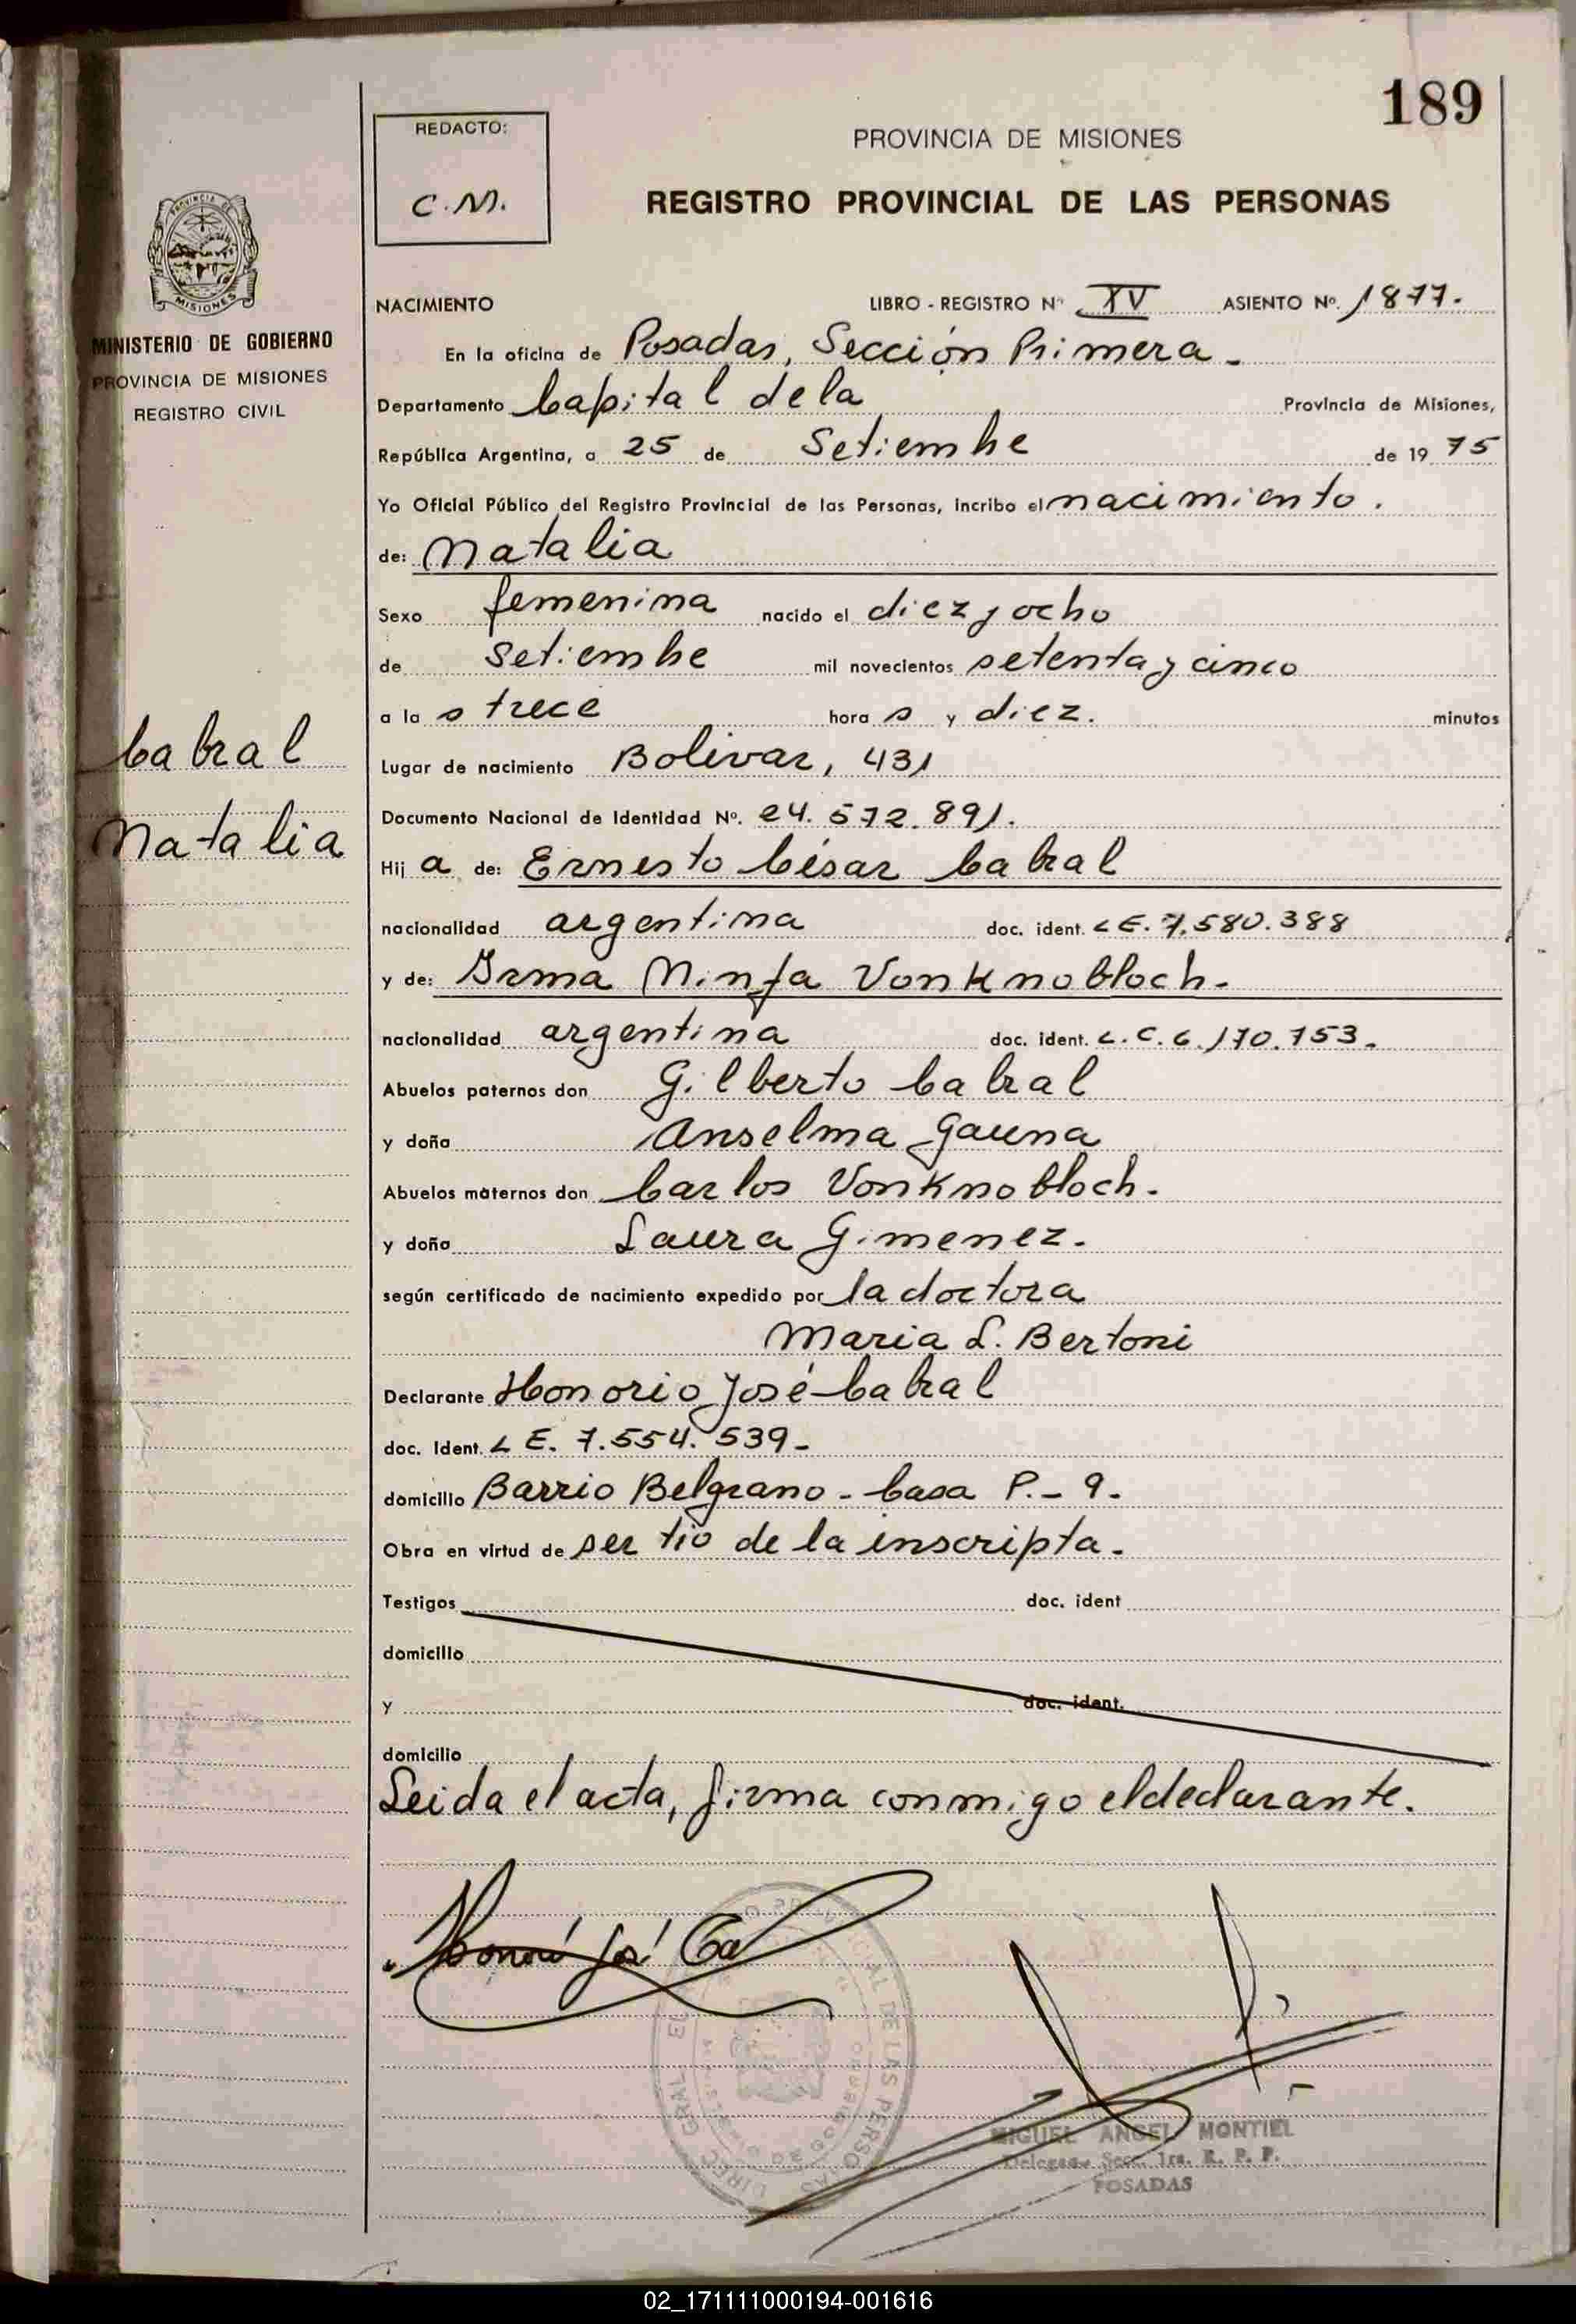 189
REDACTO:
C.M.
PROVINCIA DE MISIONES
REGISTRO PROVINCIAL DE LAS PERSONAS
PROVINCIA DE
MISIONES
MINISTERIO DE GOBIERNO
PROVINCIA DE MISIONES
REGISTRO CIVIL
Cabral
Natalia
NACIMIENTO LIBRO - REGISTRO Nº XV ASIENTO Nº. 1877.
En la oficina de Posadas, Sección Primera -
Departamento Capital de la Provincia de Misiones,
República Argentina, a 25 de Setiembre de 19 75
Yo Oficial Público del Registro Provincial de las Personas, incribo el nacimiento.
de: Natalia
Sexo femenina nacido el diez y ocho
de Setiembre mil novecientos setenta y cinco
a la s trece hora s y diez. minutos
Lugar de nacimiento Bolivar, 431
Documento Nacional de Identidad Nº. 24.572.891.
Hij a de: Ernesto César Cabral
nacionalidad argentina doc. ident. L E. 7.580.388
y de: Irma Ninfa Vonknobloch.
nacionalidad argentina doc. ident. L. C. 6.170.753.
Abuelos paternos don Gilberto Cabral
y doña Anselma Gauna
Abuelos maternos don Carlos Vonknobloch.
y doña Laura Gimenez.
según certificado de nacimiento expedido por la doctora
Maria L. Bertoni
Declarante Honorio José Cabral
doc. Ident. L E. 7.554.539-
domicilio Barrio Belgrano - Casa P. - 9.
Obra en virtud de ser tio de la inscripta.
Testigos doc. ident
domicilio
y doc. ident.
domicilio
Leida el acta, firma conmigo el declarante.
José
MIGUEL ANGEL MONTIEL
Delegado Secc. 1ra. R. P. P.
POSADAS
02_171111000194-001616